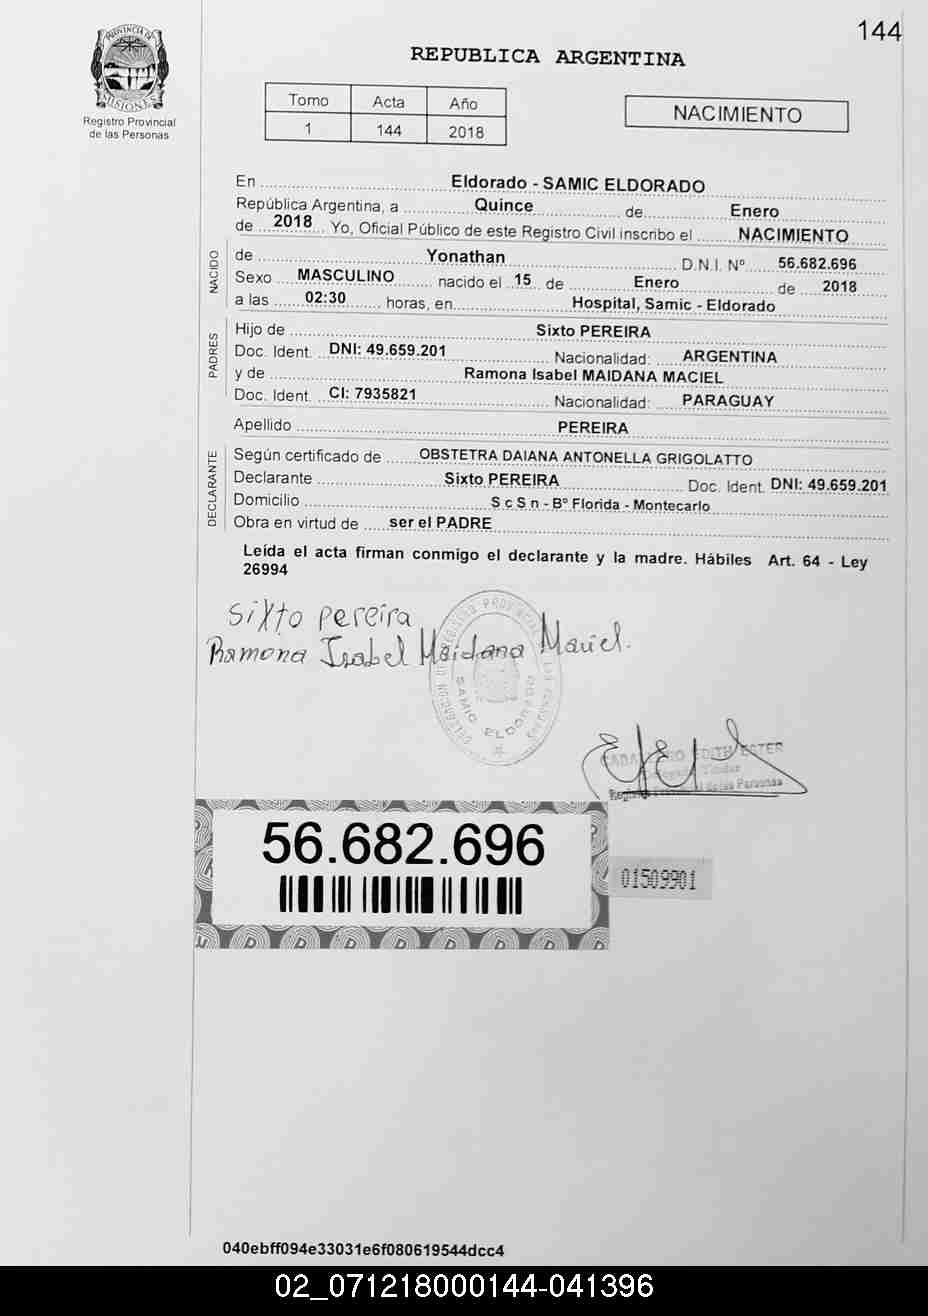 144
PROVINCIA DE
MISIONES
Registro Provincial
de las Personas
REPUBLICA ARGENTINA
Tomo Acta Año
1 144 2018
NACIMIENTO
En Eldorado - SAMIC ELDORADO
República Argentina, a Quince de Enero
de 2018 Yo, Oficial Público de este Registro Civil inscribo el NACIMIENTO
NACIDO
de Yonathan D.N.I. Nº 56.682.696
Sexo MASCULINO nacido el 15 de Enero de 2018
a las 02:30 horas, en Hospital, Samic - Eldorado
PADRES
Hijo de Sixto PEREIRA
Doc. Ident. DNI: 49.659.201 Nacionalidad: ARGENTINA
y de Ramona Isabel MAIDANA MACIEL
Doc. Ident. CI: 7935821 Nacionalidad: PARAGUAY
Apellido PEREIRA
DECLARANTE
Según certificado de OBSTETRA DAIANA ANTONELLA GRIGOLATTO
Declarante Sixto PEREIRA Doc. Ident. DNI: 49.659.201
Domicilio S c S n - Bº Florida - Montecarlo
Obra en virtud de ser el PADRE
Leída el acta firman conmigo el declarante y la madre. Hábiles Art. 64 - Ley
26994
Sixto pereira
Ramona Isabel Maidana Maciel.
SAMIC ELDORADO
EDITH ESTER
56.682.696
01509901
040ebff094e33031e6f080619544dcc4
02_071218000144-041396